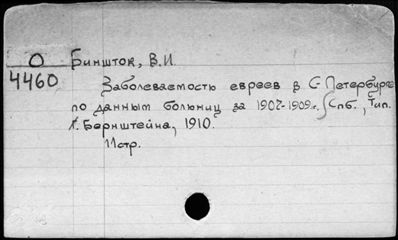 О
4460
Биншток, В.И.
Заболеваемость евреев в С-Петербурге
по данным больниц за 1907-1909г. Спб., Тип.
Л. Бернштейна, 1910.
11стр.